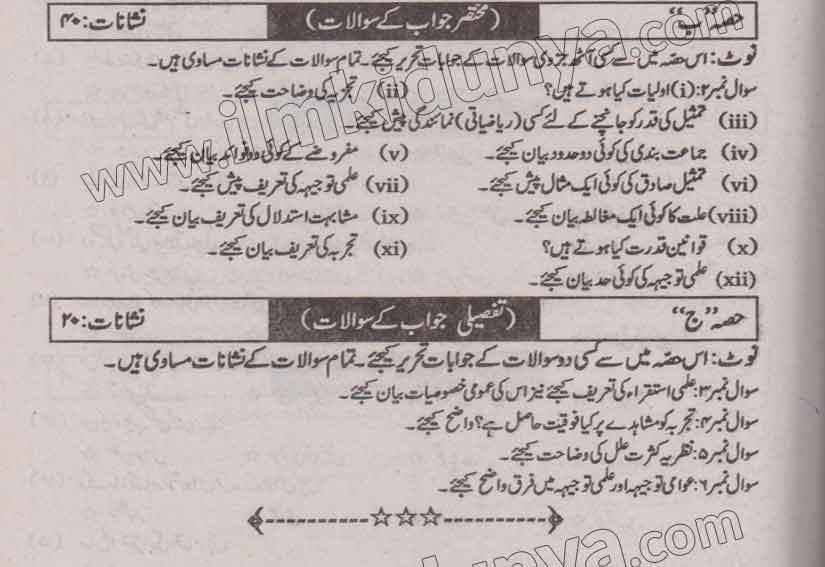 حصہ ”ب“ (مختصر جواب کے سوالات) نشانات: ۴۰
نوٹ: اس حصہ میں سے کسی آٹھ جزوی سوالات کے جوابات تحریر کیجئے۔ تمام سوالات کے نشانات مساوی ہیں۔
سوال نمبر ۲: (i) اولیات کیا ہوتے ہیں؟ (ii) تجزیہ کی وضاحت کیجئے۔
(iii) تمثیل کی قدر کو جانچنے کے لئے کسی (ریاضیاتی) نمائندگی پیش کیجئے۔
(iv) جماعت بندی کی کوئی دو حدود بیان کیجئے۔ (v) مفروضے کے کوئی دو فوائد بیان کیجئے۔
(vi) تمثیل صادق کی کوئی ایک مثال پیش کیجئے۔ (vii) علمی توجیہہ کی تعریف پیش کیجئے۔
(viii) علت کا کوئی ایک مغالطہ بیان کیجئے۔ (ix) مشابہت استدلال کی تعریف بیان کیجئے۔
(x) قوانین قدرت کیا ہوتے ہیں؟ (xi) تجربہ کی تعریف بیان کیجئے۔
(xii) علمی توجیہہ کی کوئی حد بیان کیجئے۔
حصہ ”ج“ (تفصیلی جواب کے سوالات) نشانات: ۲۰
نوٹ: اس حصّہ میں سے کسی دو سوالات کے جوابات تحریر کیجئے۔ تمام سوالات کے نشانات مساوی ہیں۔
سوال نمبر ۳: علمی استقراء کی تعریف کیجئے نیز اس کی عمومی خصوصیات بیان کیجئے۔
سوال نمبر ۴: تجربہ کو مشاہدے پر کیا فوقیت حاصل ہے؟ واضح کیجئے۔
سوال نمبر ۵: نظریہ کثرت علل کی وضاحت کیجئے۔
سوال نمبر ۶: عوامی توجیہہ اور علمی توجیہہ میں فرق واضح کیجئے۔
www.ilmkidunya.com